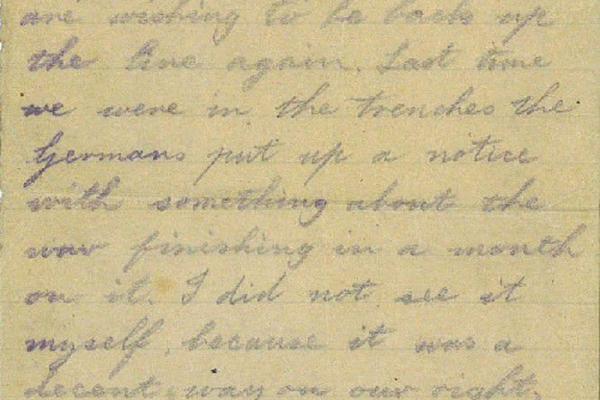 are wishing to be back up
the line again. Last time
we were in the trenches the
Germans put up a notice
with something about the
war finishing in a month
on it. I did not see it
myself, because it was a
decent way on our right,